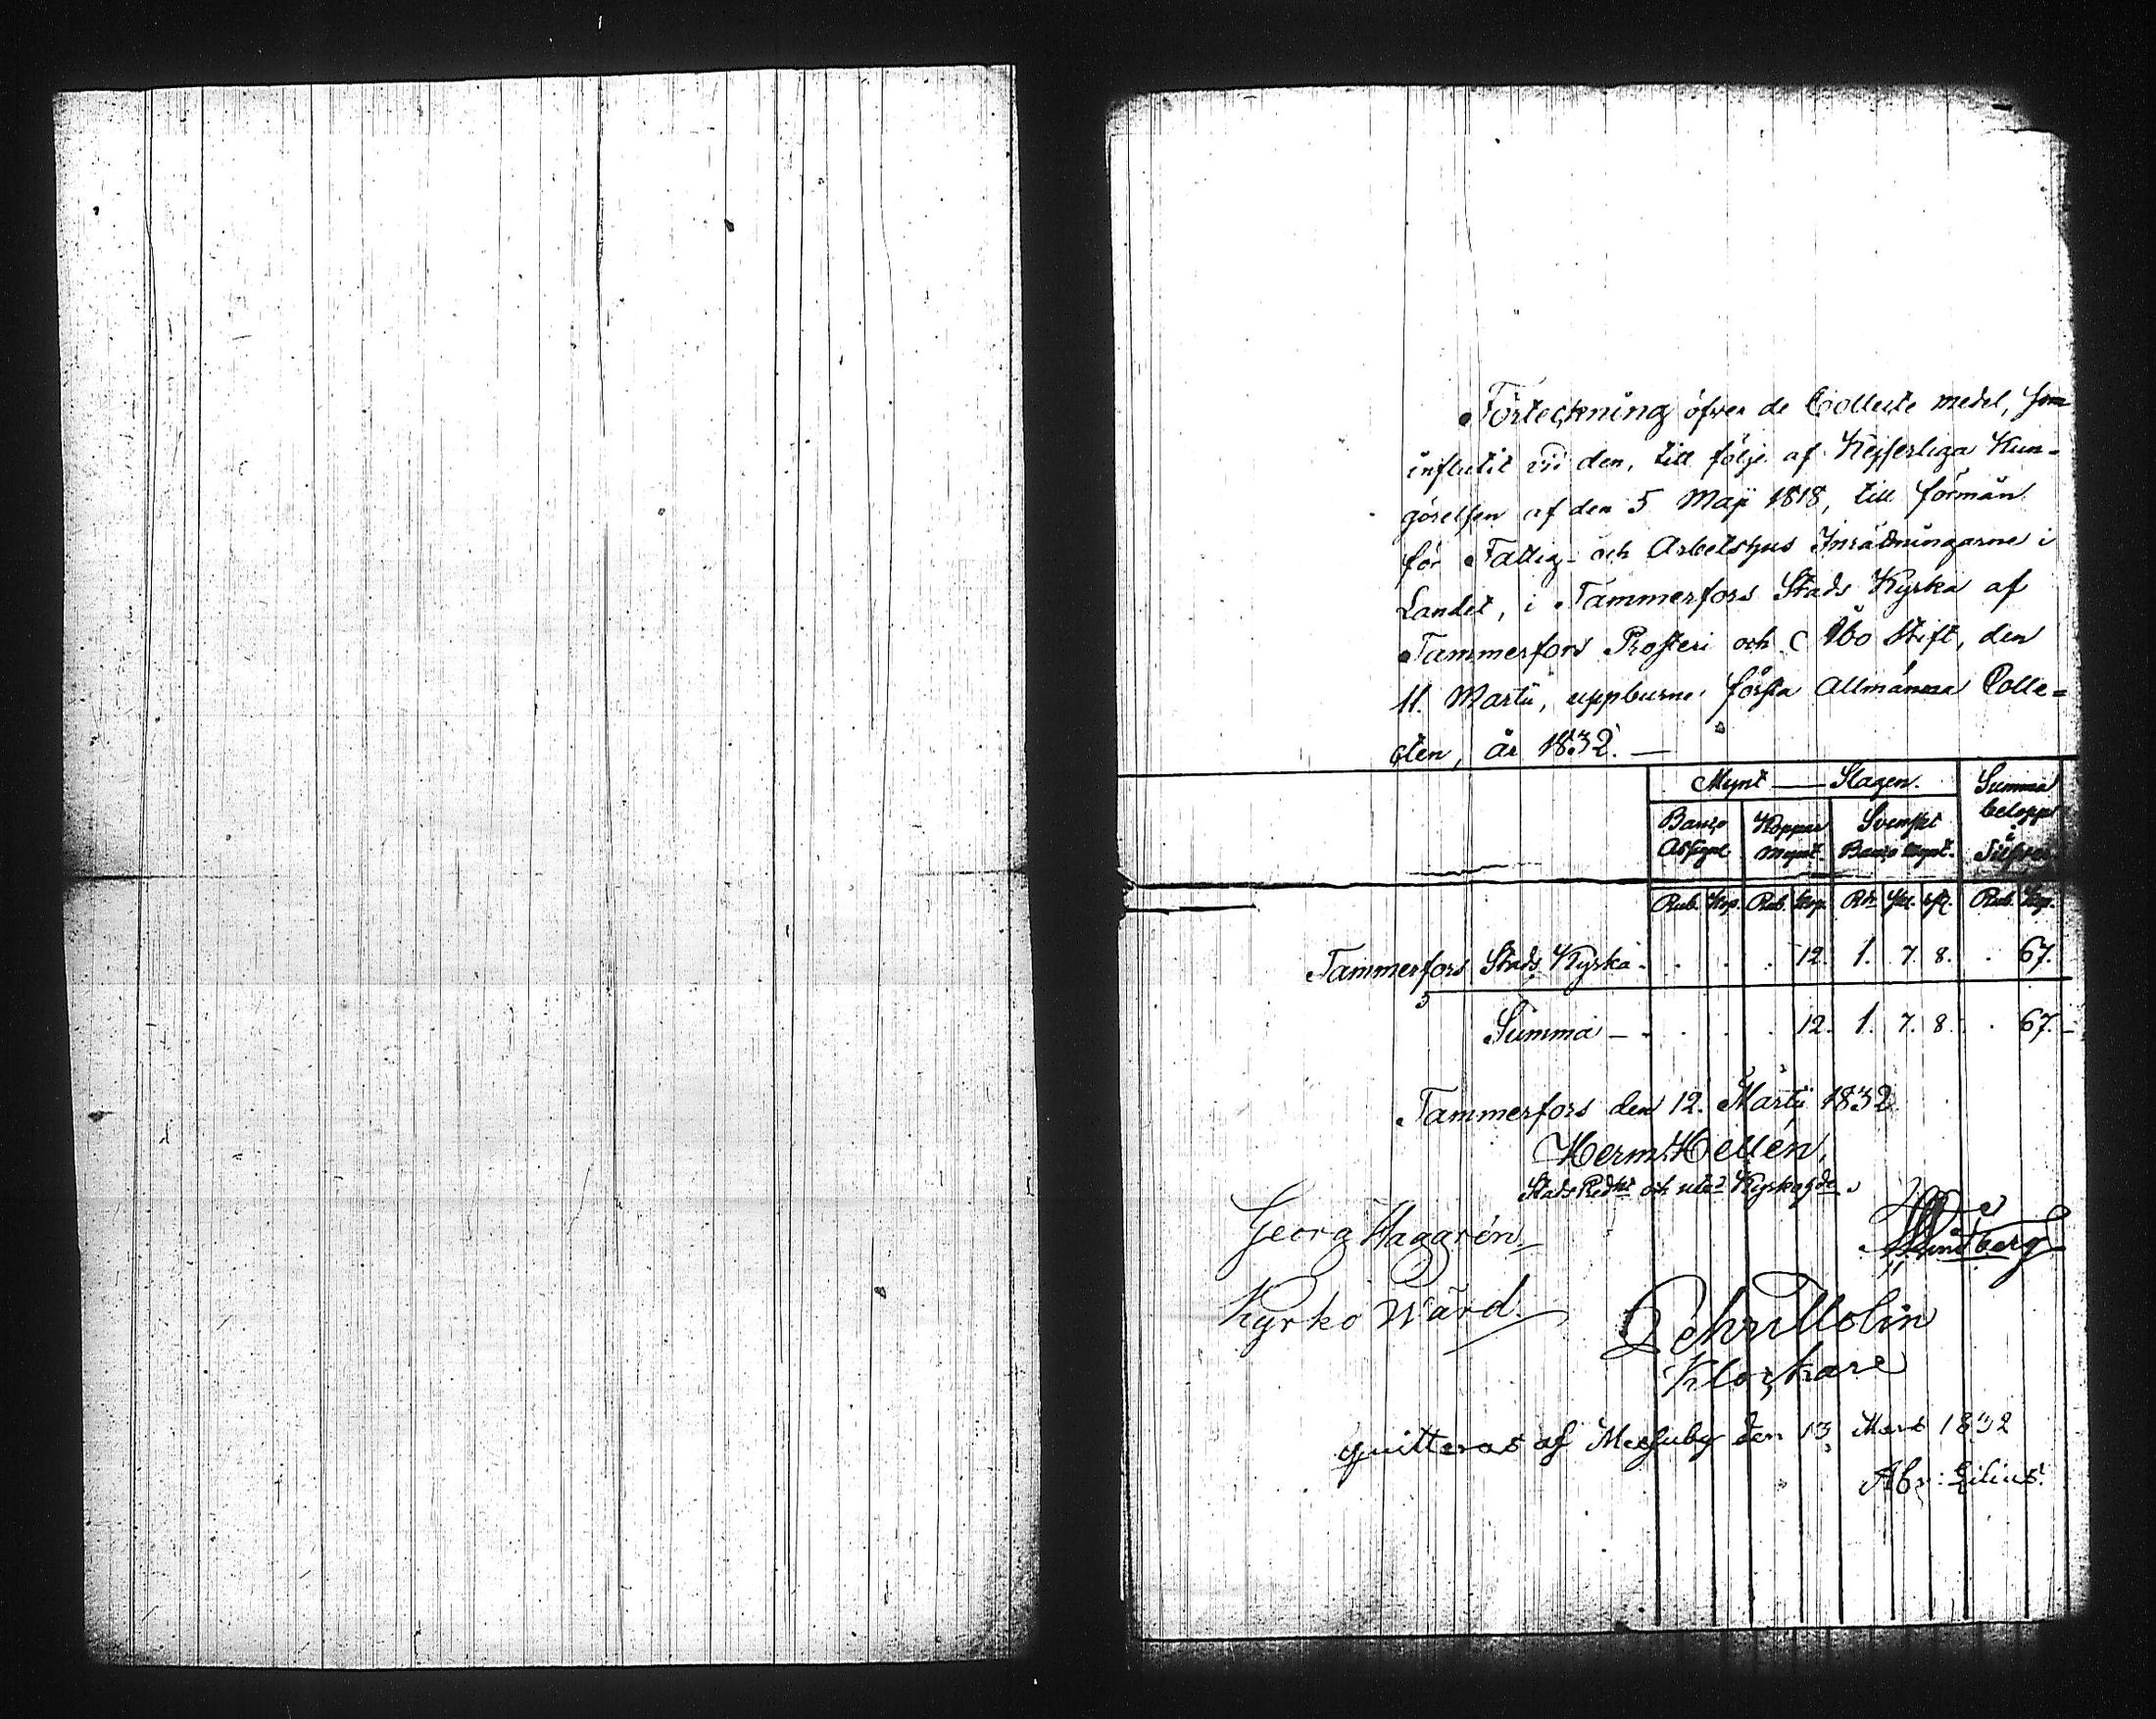 Förteckning öfver de Collecte medel, som
influtit vid den, till följe af Kejserliga Kun-
görelsen af den 5 Maji 1818, till förmån
för Fattig- och Arbetshus Inrättningarne i
Landet, i Tammerfors Stads Kyrka af
Tammerfors Prosteri och Åbo Stift, den
11. Martii, uppburne första Allmänna Colle=
cten, år 1832. —
Mynt — Slagen. Summa
Banco Koppar Svenskt belopp
Assignt Mynt. Banco Mynt. i Silfver
Rub. Kop. Rub. Kop. Rdr Sk. rst. Rub. Kop.
Tammerfors Stads Kyrka . . . . 12. 1. 7. 8. . 67.
Summa — . . . . 12. 1. 7. 8. . 67.
Tammerfors den 12. Martii 1832
Herm. Hellén,
Stads Pred. och Kyrkohde.
Georg Haggrén
Lindberg
Kyrko Wärd.
Pehr Molin
Klockare
quitteras af Messuby den 13 Mars 1832
Abr: Lilius.